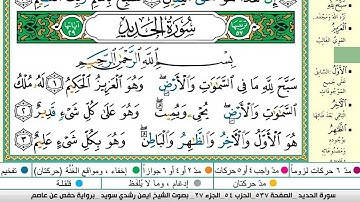 سُورَةُ الحَدِيدِ
بِسْمِ ٱللَّهِ ٱلرَّحْمَٰنِ ٱلرَّحِيمِ
سَبَّحَ لِلَّهِ مَا فِي ٱلسَّمَٰوَٰتِ وَٱلْأَرْضِ وَهُوَ ٱلْعَزِيزُ ٱلْحَكِيمُ ١ لَهُۥ مُلْكُ
ٱلسَّمَٰوَٰتِ وَٱلْأَرْضِ يُحْيِۦ وَيُمِيتُ وَهُوَ عَلَىٰ كُلِّ شَىْءٍ قَدِيرٌ ٢
هُوَ ٱلْأَوَّلُ وَٱلْءَاخِرُ وَٱلظَّٰهِرُ وَٱلْبَاطِنُ وَهُوَ بِكُلِّ شَىْءٍ عَلِيمٌ ٣
العَزِيزُ
الأَوَّلُ
مدّ ٦ حركات لزوماً مدّ واجب ٤ أو ٥ حركات مدّ ٢ أو ٤ أو ٦ جوازاً إخفاء، ومواقع الغُنَّة (حركتان) تفخيم
مدّ حركتان إدغام، وما لا يُلفَظ قلقلة
سورة الحديد_ الصفحة ٥٣٧_ السورة ٥٧_ الجزء ٢٧_ بصوت الشيخ ايمن رشدي سويد_ برواية حفص عن عاصم